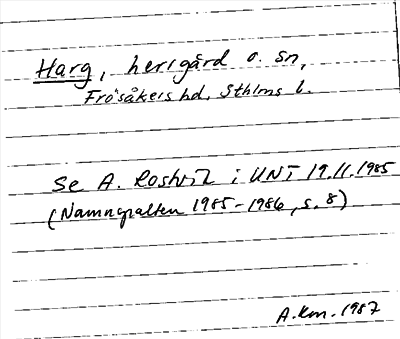 Harg, herrgård o. sn,
Frösåkers hd, Sthlms l.
Se A. Rostvik i UNT 19.11.1985
(Namnspalten 1985-1986, s. 8)
A.Km. 1987